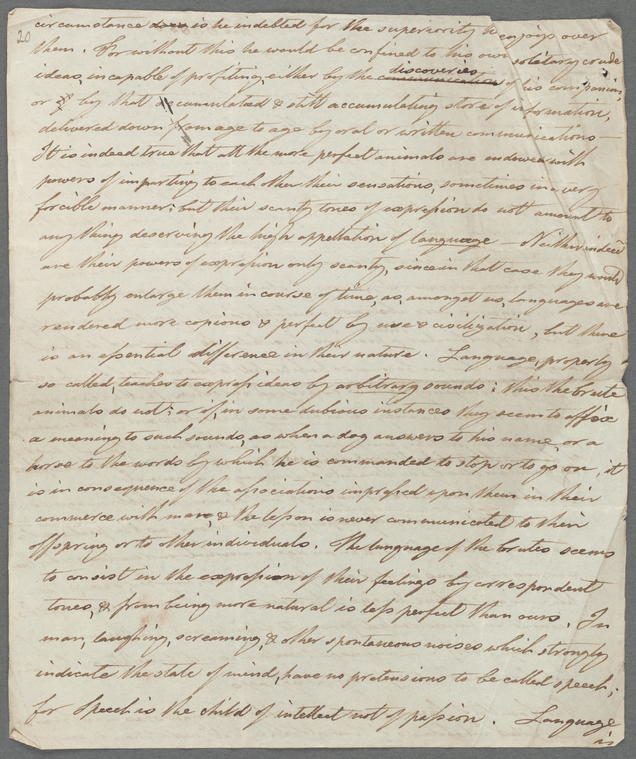 20
circumstance does is he indebted for the superiority he enjoys over
them. For without this he would be confined to his own solitary crude
ideas, incapable of profiting either by the communication discoveries of his companions,
or by that accumulated & still accumulating store of information,
delivered down from age to age by oral or written communications —
It is indeed true that all the more perfect animals are endowed with
powers of imparting to each other their sensations, sometimes in a very
forcible manner; but their scanty tones of expression do not amount to
any thing deserving the high appellation of language — Neither indeed
are their powers of expression only scanty, since in that case they would
probably enlarge them in course of time, as, amongst us, languages are
rendered more copious & perfect by use & civilization, but there
is an essential difference in their nature. Language, properly
so called, teaches to express ideas by arbitrary sounds; this the brute
animals do not: or if, in some dubious instances they seem to affix
a meaning to such sounds, as when a dog answers to his name, or a
horse to the words by which he is commanded to stop or to go on, it
is in consequence of the associations impressed upon them in their
commerce with man, & the lesson is never communicated to their
offspring or to other individuals. The language of the brutes seems
to consist in the expression of their feelings by correspondent
tones, & from being more natural is less perfect than ours. In
man, laughing, screaming, & other spontaneous noises which strongly
indicate the state of mind, have no pretensions to be called speech;
for speech is the child of intellect not of passion. Language
is